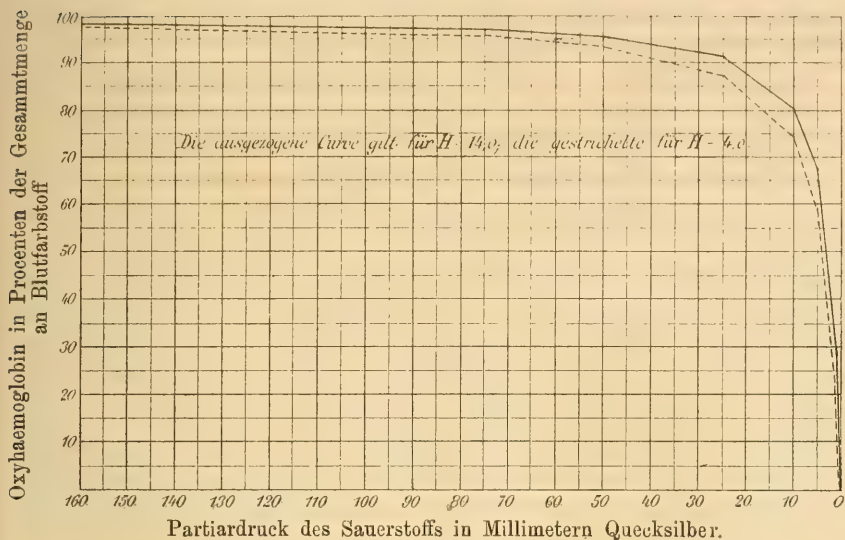 Oxyhaemoglobin in Procenten der Gesammtmenge
an Blutfarbstoff
100
90
80
Die ausgezogene Curve gilt für H = 14,0; die gestrichelte für H = 4,0.
70
60
50
40
30
20
10
160. 150. 140 130 120 110 100 90 80 70 60 50 40 30 20. 10 0
Partiardruck des Sauerstoffs in Millimetern Quecksilber.